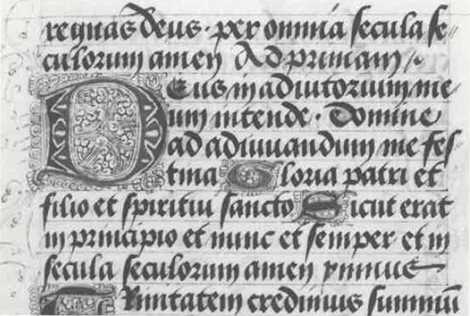 regnas deus · per omnia secula se-
culorum amen Ad primam
Deus in adiutorium me-
um intende · Domine
ad adiuuandum me fes-
tina Gloria patri et
filio et spiritui sancto Sicut erat
in principio et nunc et semper et in
secula seculorum amen ymnus
Trinitatem credimus summū